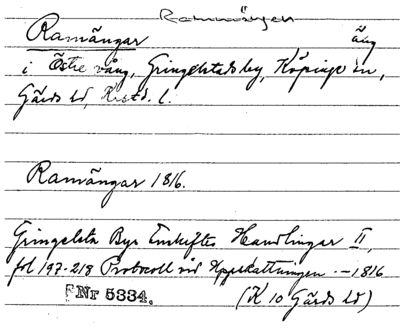 Ramängen
Ramängar äng
i Östre vång, Gringelstads by, Köpinge sn,
Gärds hd, Krist. l.
Ramängar 1816.
Gringelsta Bys Enskiftes Handlingar II,
fol 197-218 Protocoll vid Uppskattningen. - 1816
Nr 5334. (K 10 Gärds hd)